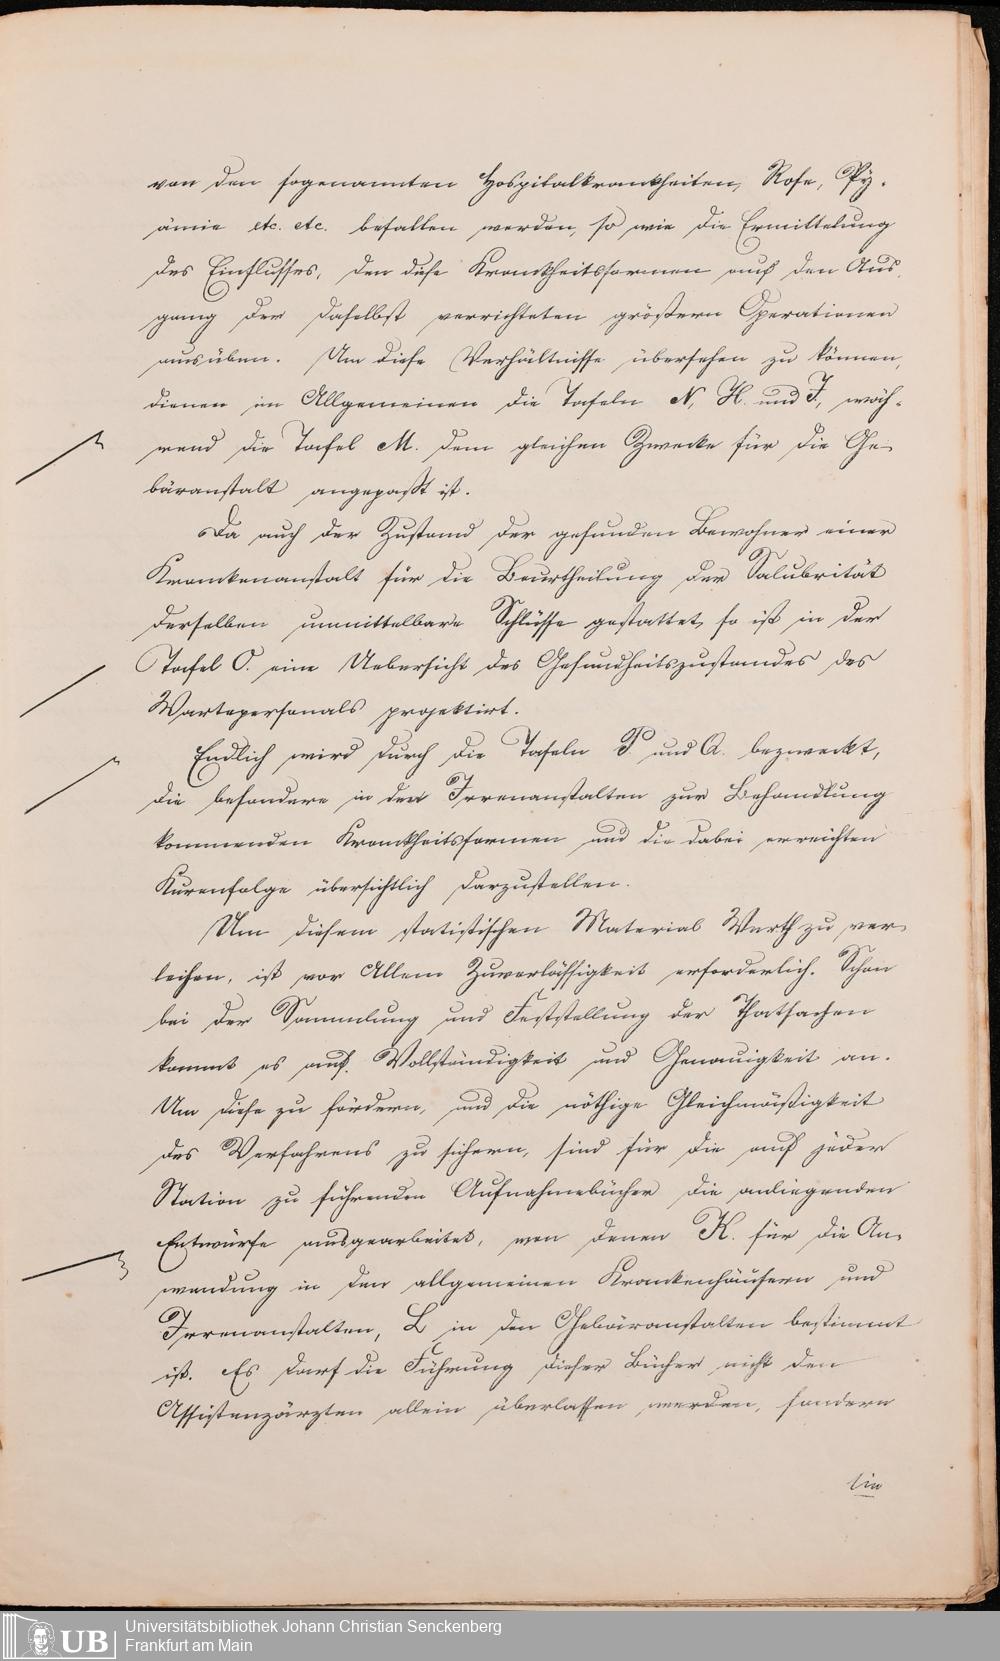 von den sogenannten Hospitalkrankheiten, Rose, Py-
ämie etc. etc. befallen werden, so wie die Ermittelung
des Einflusses, den diese Krankheitsformen auf den Aus-
gang der daselbst verrichteten größern Operationen
ausüben. Um diese Verhältnisse übersehen zu können,
dienen im Allgemeinen die Tafeln N, H. und J., wäh-
rend die Tafel M. dem gleichen Zwecke für die Ge-
bäranstalt angepaßt ist.
Da auch der Zustand der gesunden Bewohner einer
Krankenanstalt für die Beurtheilung der Salubrität
derselben unmittelbare Schlüsse gestattet, so ist in der
Tafel O. eine Uebersicht des Gesundheitszustandes des
Wartepersonals projektirt.
Endlich wird durch die Tafeln P. und Q. bezweckt,
die besondere in den Irrenanstalten zur Behandlung
kommenden Krankheitsformen und die dabei erreichten
Kurerfolge übersichtlich darzustellen.
Um diesem statistischen Material Werth zu ver-
leihen, ist vor Allem Zuverlässigkeit erforderlich. Schon
bei der Sammlung und Feststellung der Thatsachen
kommt es auf Vollständigkeit und Genauigkeit an.
Um diese zu fördern, und die nöthige Gleichmäßigkeit
des Verfahrens zu sichern, sind für die auf jeder
Station zu führenden Aufnahmebücher die anliegenden
Entwürfe ausgearbeitet, von denen K. für die An-
wendung in den allgemeinen Krankenhäusern und
Irrenanstalten, L in den Gebäranstalten bestimmt
ist. Es darf die Führung dieser Bücher nicht den
Assistenzärzten allein überlassen werden, sondern
UB
Universitätsbibliothek Johann Christian Senckenberg
Frankfurt am Main